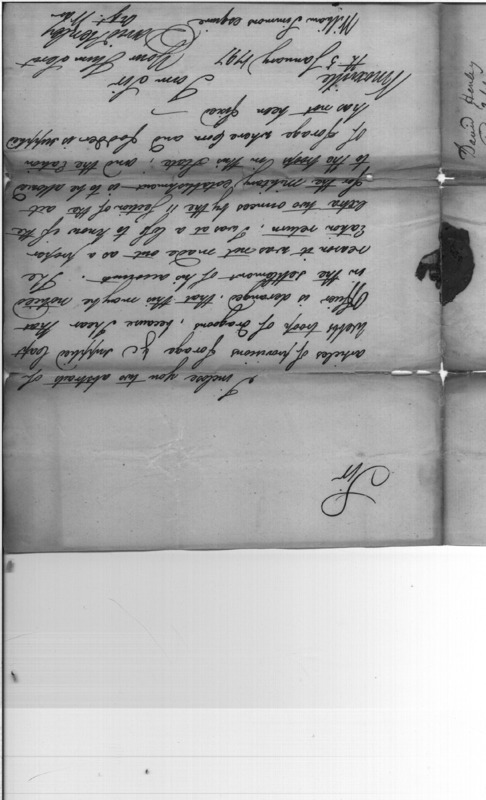 Sir
I inclose you two abstracts of
articles of provisions forage &c supplied Capt
Webb troop of Dragoons, because I hear that
Officer is deranged, that this may be noticed
in the settlement of his accounts. The
reason it was not made out as a proper
ration return, I was at a loss to know if the
extra two ounces by the 11 section of the act
for the Military Establishment is to be allowed
to the troops in this State; and the ration
of forage where corn and fodder is supplied
has not been fixed —
I am Sir
Your Hum Servt
David Henley
Agt. War
Knoxville
the 3 January 1797
William Simmons Esquire
David Henley